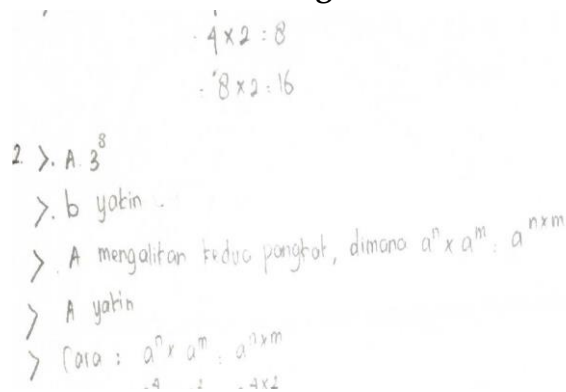 4 x 2 : 8
: 8 x 2 : 16
2. >. A. 3⁸
>. b yakin.
> A mengalikan kedua pangkat, dimana aⁿ x aᵐ : aⁿˣᵐ
> A yakin
> Cara : aⁿ x aᵐ : aⁿˣᵐ